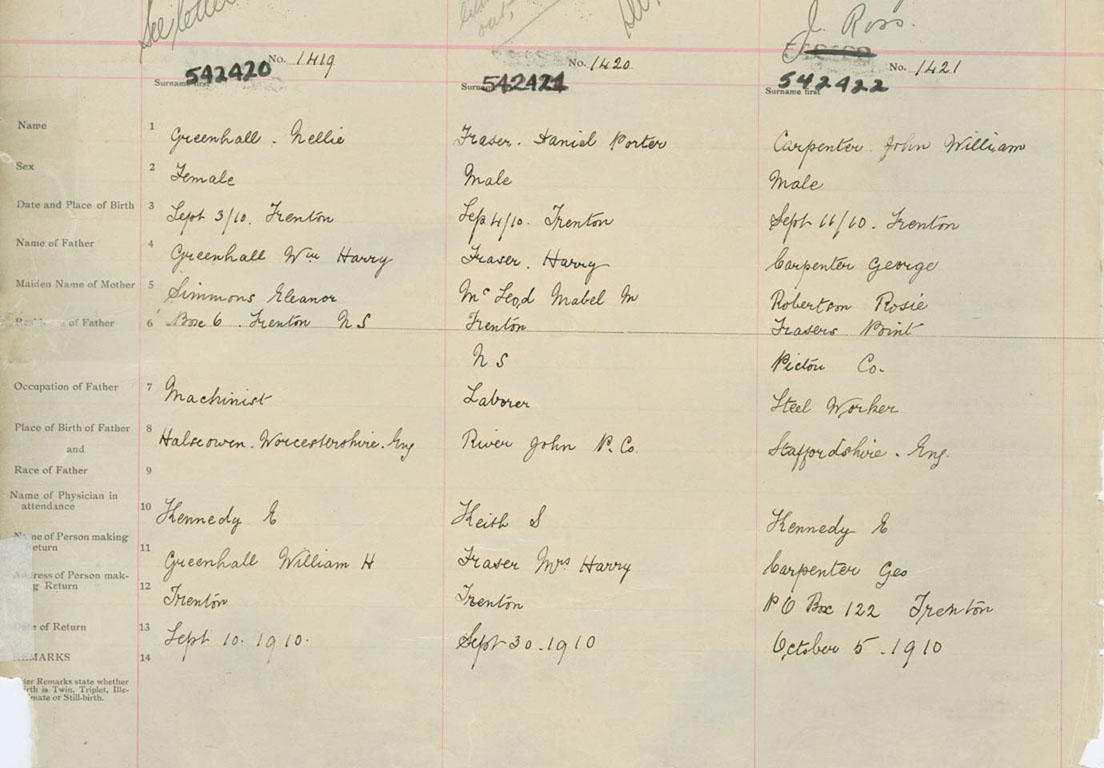 See letter
J. Ross.
No. 1419
No. 1420
No. 1421
542420
542421
542422
Surname first
Surname first
Surname first
Name 1 Greenhall. Nellie Fraser. Daniel Porter Carpenter John William
Sex 2 Female Male Male
Date and Place of Birth 3 Sept 3/10. Trenton Sep 4/10. Trenton Sept 11/10. Trenton
Name of Father 4 Greenhall Wm Harry Fraser. Harry Carpenter George
Maiden Name of Mother 5 Simmons Eleanor McLeod Mabel M Robertson Rosie
Residence of Father 6 Box 6. Trenton N S Trenton Frasers Point
N S Pictou Co.
Occupation of Father 7 Machinist Laborer Steel Worker
Place of Birth of Father 8 Halseowen. Worcestershire. Eng River John P. Co. Staffordshire. Eng.
and
Race of Father 9
Name of Physician in
attendance 10 Kennedy E Keith S Kennedy E
Name of Person making
Return 11 Greenhall William H Fraser Mrs Harry Carpenter Geo
Address of Person mak-
ing Return 12 Trenton Trenton P O Box 122 Trenton
Date of Return 13 Sept 10. 1910. Sept 30. 1910 October 5. 1910
REMARKS 14
Remarks state whether
Birth is Twin, Triplet, Ille-
gitimate or Still-birth.